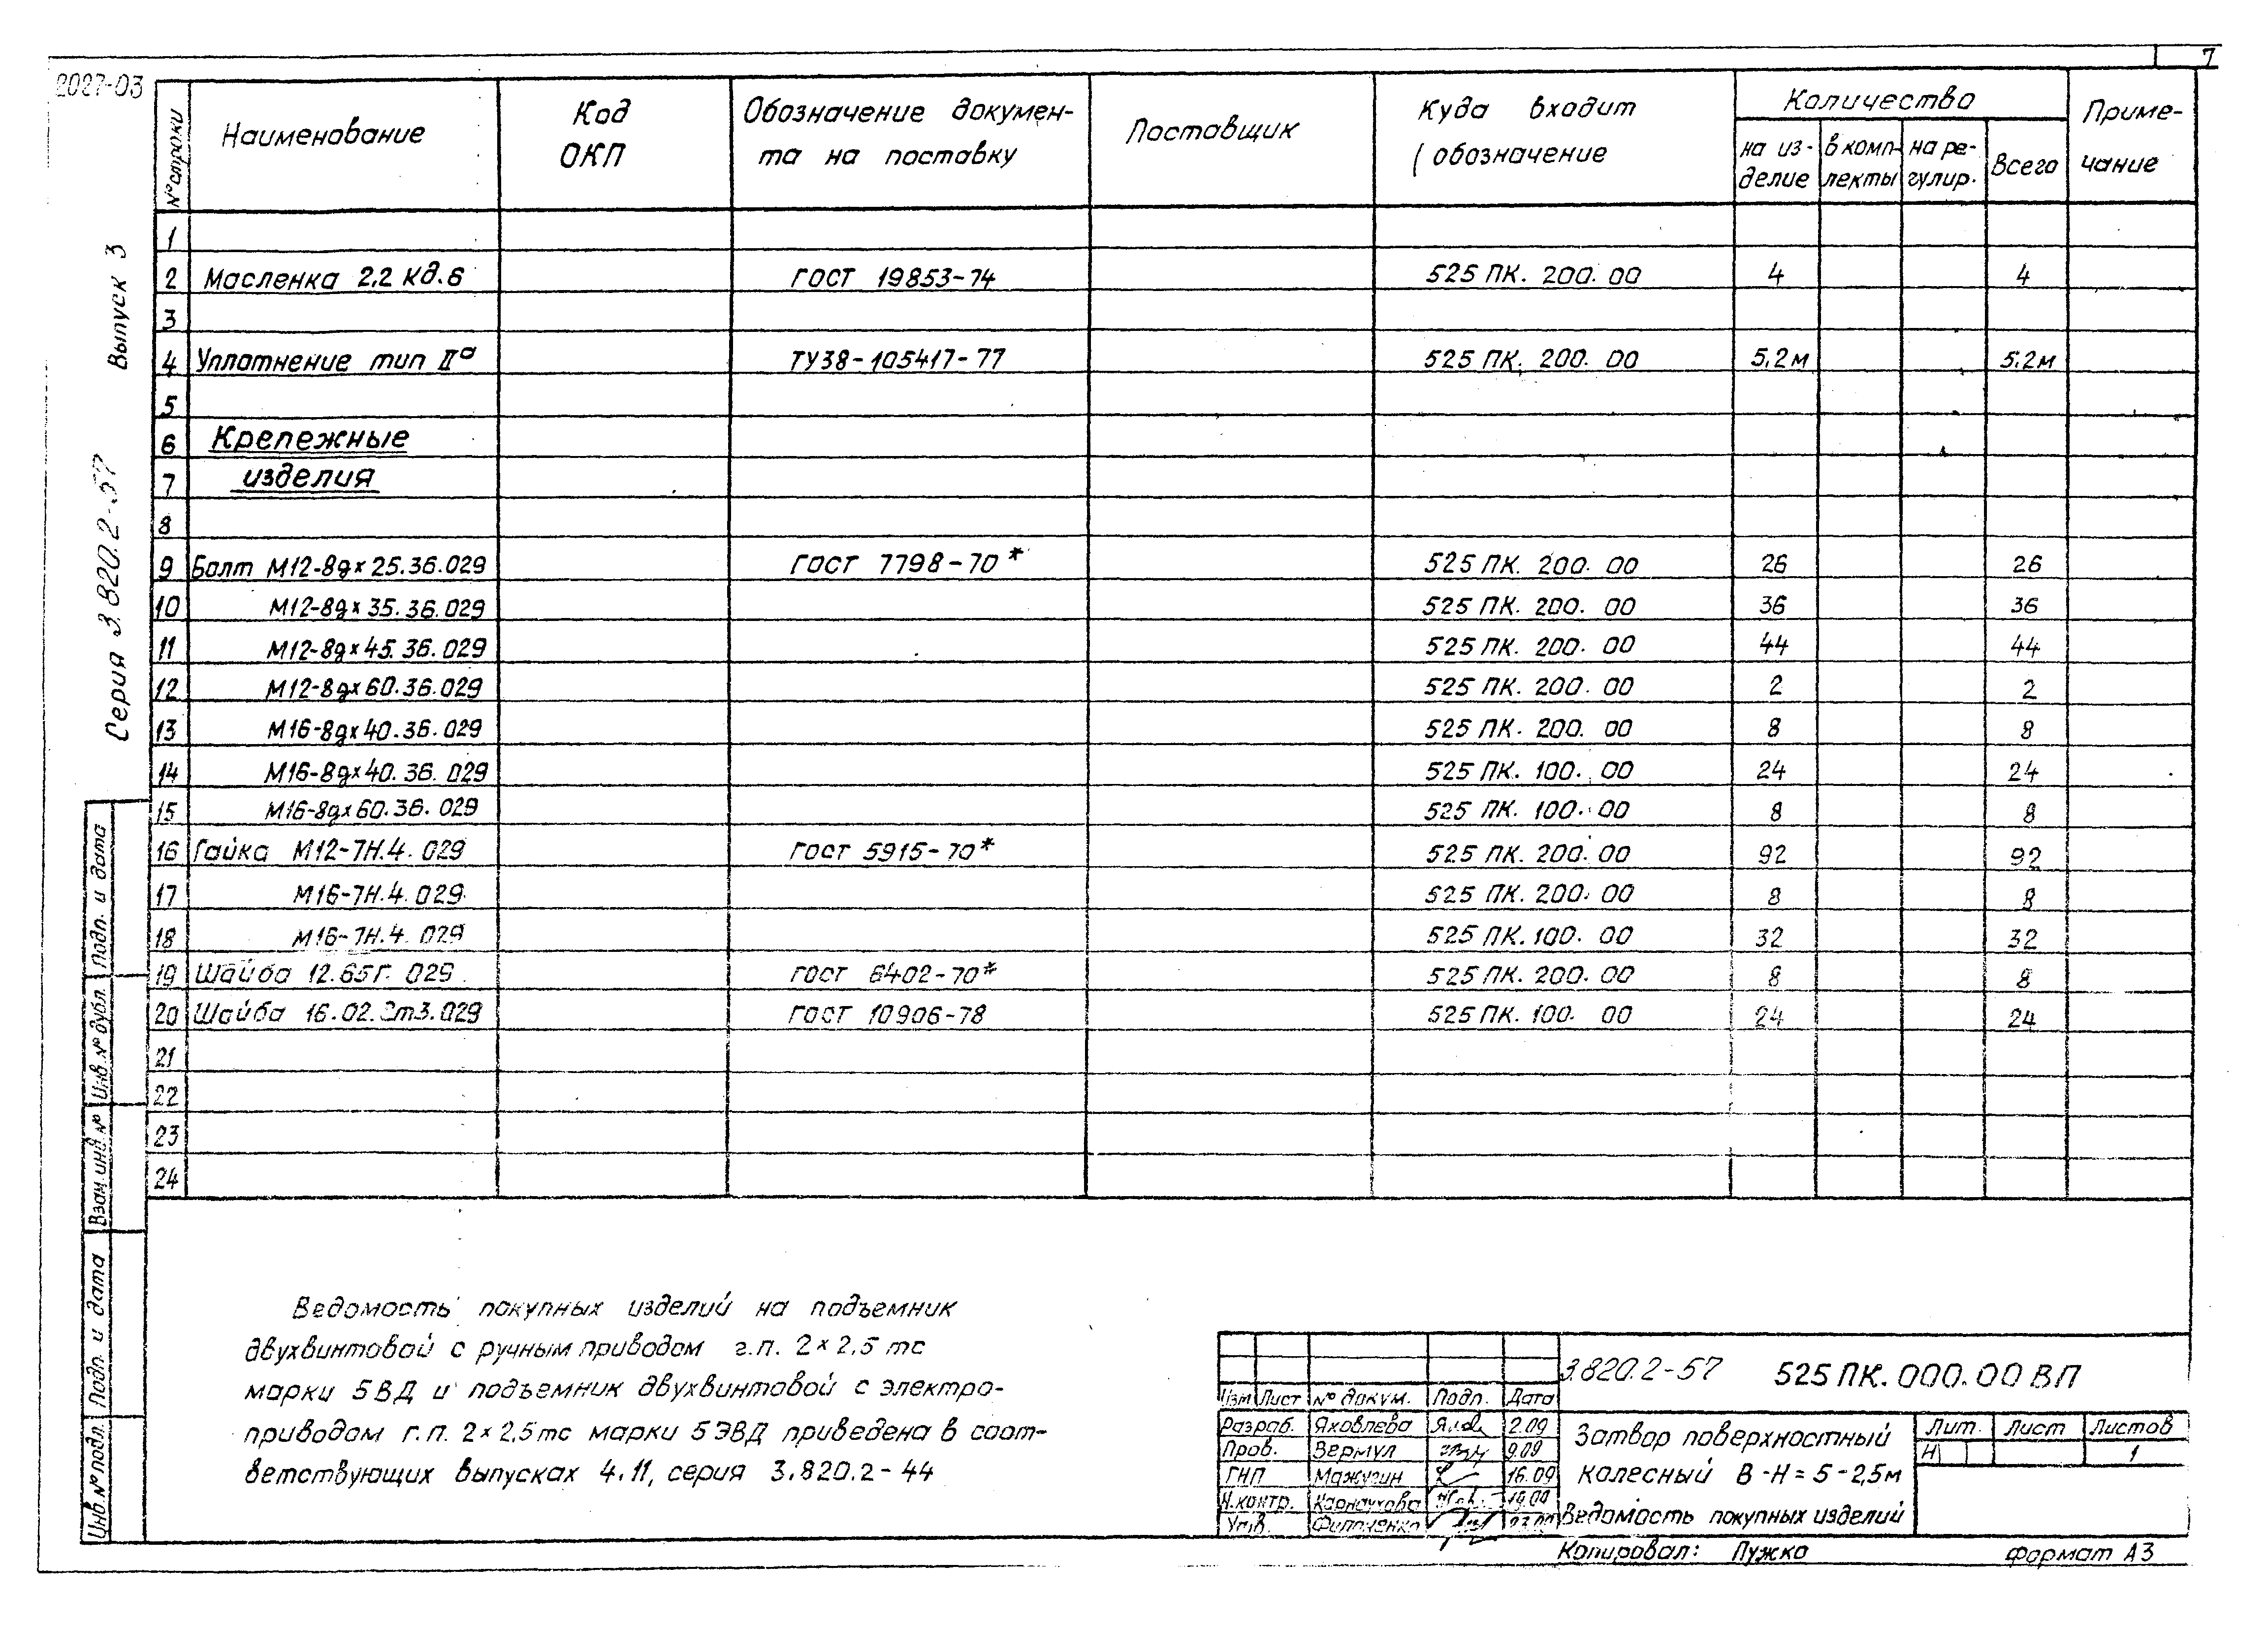 7
2027-03
Серия 3.820.2-57 Выпуск 3
№ строки | Наименование | Код ОКП | Обозначение докумен-та на поставку | Поставщик | Куда входит (обозначение | Количество | Приме-чание
на из-делие | в комп-лекты | на ре-гулир. | Всего
1
2 Масленка 2,2 кд.6 ГОСТ 19853-74 525 ПК. 200. 00 4 4
3
4 Уплотнение тип IIа ТУ38-105417-77 525 ПК. 200. 00 5,2м 5,2м
5
6 Крепежные
7 изделия
8
9 Болт М12-8gx25.36.029 ГОСТ 7798-70* 525 ПК. 200. 00 26 26
10 М12-8gx35.36.029 525 ПК. 200. 00 36 36
11 М12-8gx45.36.029 525 ПК. 200. 00 44 44
12 М12-8gx60.36.029 525 ПК. 200. 00 2 2
13 М16-8gx40.36.029 525 ПК. 200. 00 8 8
14 М16-8gx40.36.029 525 ПК. 100. 00 24 24
15 М16-8gx60.36.029 525 ПК. 100. 00 8 8
16 Гайка М12-7Н.4.029 ГОСТ 5915-70* 525 ПК. 200. 00 92 92
17 М16-7Н.4.029 525 ПК. 200. 00 8 8
18 М16-7Н.4.029 525 ПК. 100. 00 32 32
19 Шайба 12.65Г.029 ГОСТ 6402-70* 525 ПК. 200. 00 8 8
20 Шайба 16.02.Ст3.029 ГОСТ 10906-78 525 ПК. 100. 00 24 24
21
22
23
24
Ведомость покупных изделий на подъемник
двухвинтовой с ручным приводом г.п. 2×2,5 тс
марки 5ВД и подъемник двухвинтовой с электро-
приводом г.п. 2×2,5тс марки 5ЭВД приведена в соот-
ветствующих выпусках 4.11, серия 3.820.2-44
Инв.№ подл. | Подп. и дата | Взам.инв.№ | Инв.№ дубл. | Подп. и дата
3.820.2-57 525 ПК. 000. 00 ВП
Изм Лист № докум. Подп. Дата
Разраб. Яковлева 2.09
Пров. Вермул 9.09
ГНП Мажугин 16.09
Н.контр. Карнаухова
Утв.
Затвор поверхностный
колесный В-Н=5-2,5м
Ведомость покупных изделий
Лит. Лист Листов
Н 1
Копировал: Пужко Формат А3